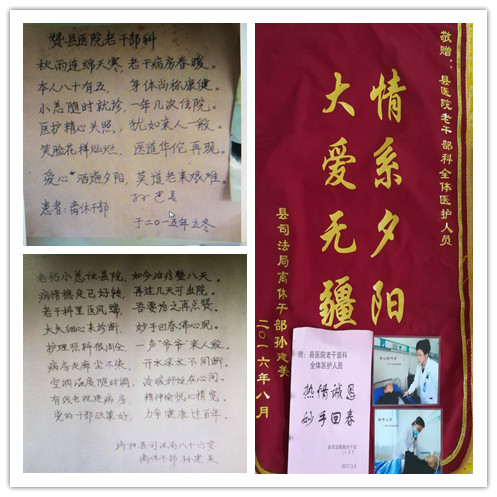 赞县医院老干部科
秋雨连绵天寒，老干病房春暖。
本人八十有五，身体尚称康健。
小恙随时就诊，一年几次住院。
医护精心关照，犹如亲人一般。
笑脸花样灿烂，医道华佗再现。
爱心洒遍夕阳，莫道老来艰难。
患者：离休干部 孙建美
于二〇一五年立冬
老朽小恙住县院，如今治疗整八天。
病情稳定已好转，再过几天可出院。
老干科里医风端，吾要为之再点赞。
大夫细心来诊断，妙手回春佛心现。
一声爷爷亲人般。
病房走廊尘不染，开水凉水不间断。
冷暖
精神愉悦心情宽。
党的干部政策好，
县司法局八十六岁
离休干部 孙建美
敬赠：县医院老干部科全体医护人员
情系夕阳
大爱无疆
县司法局离休干部孙建美
二〇一六年八月
赠：县医院老干部科
全体医护人员
热情诚恳
妙手回春